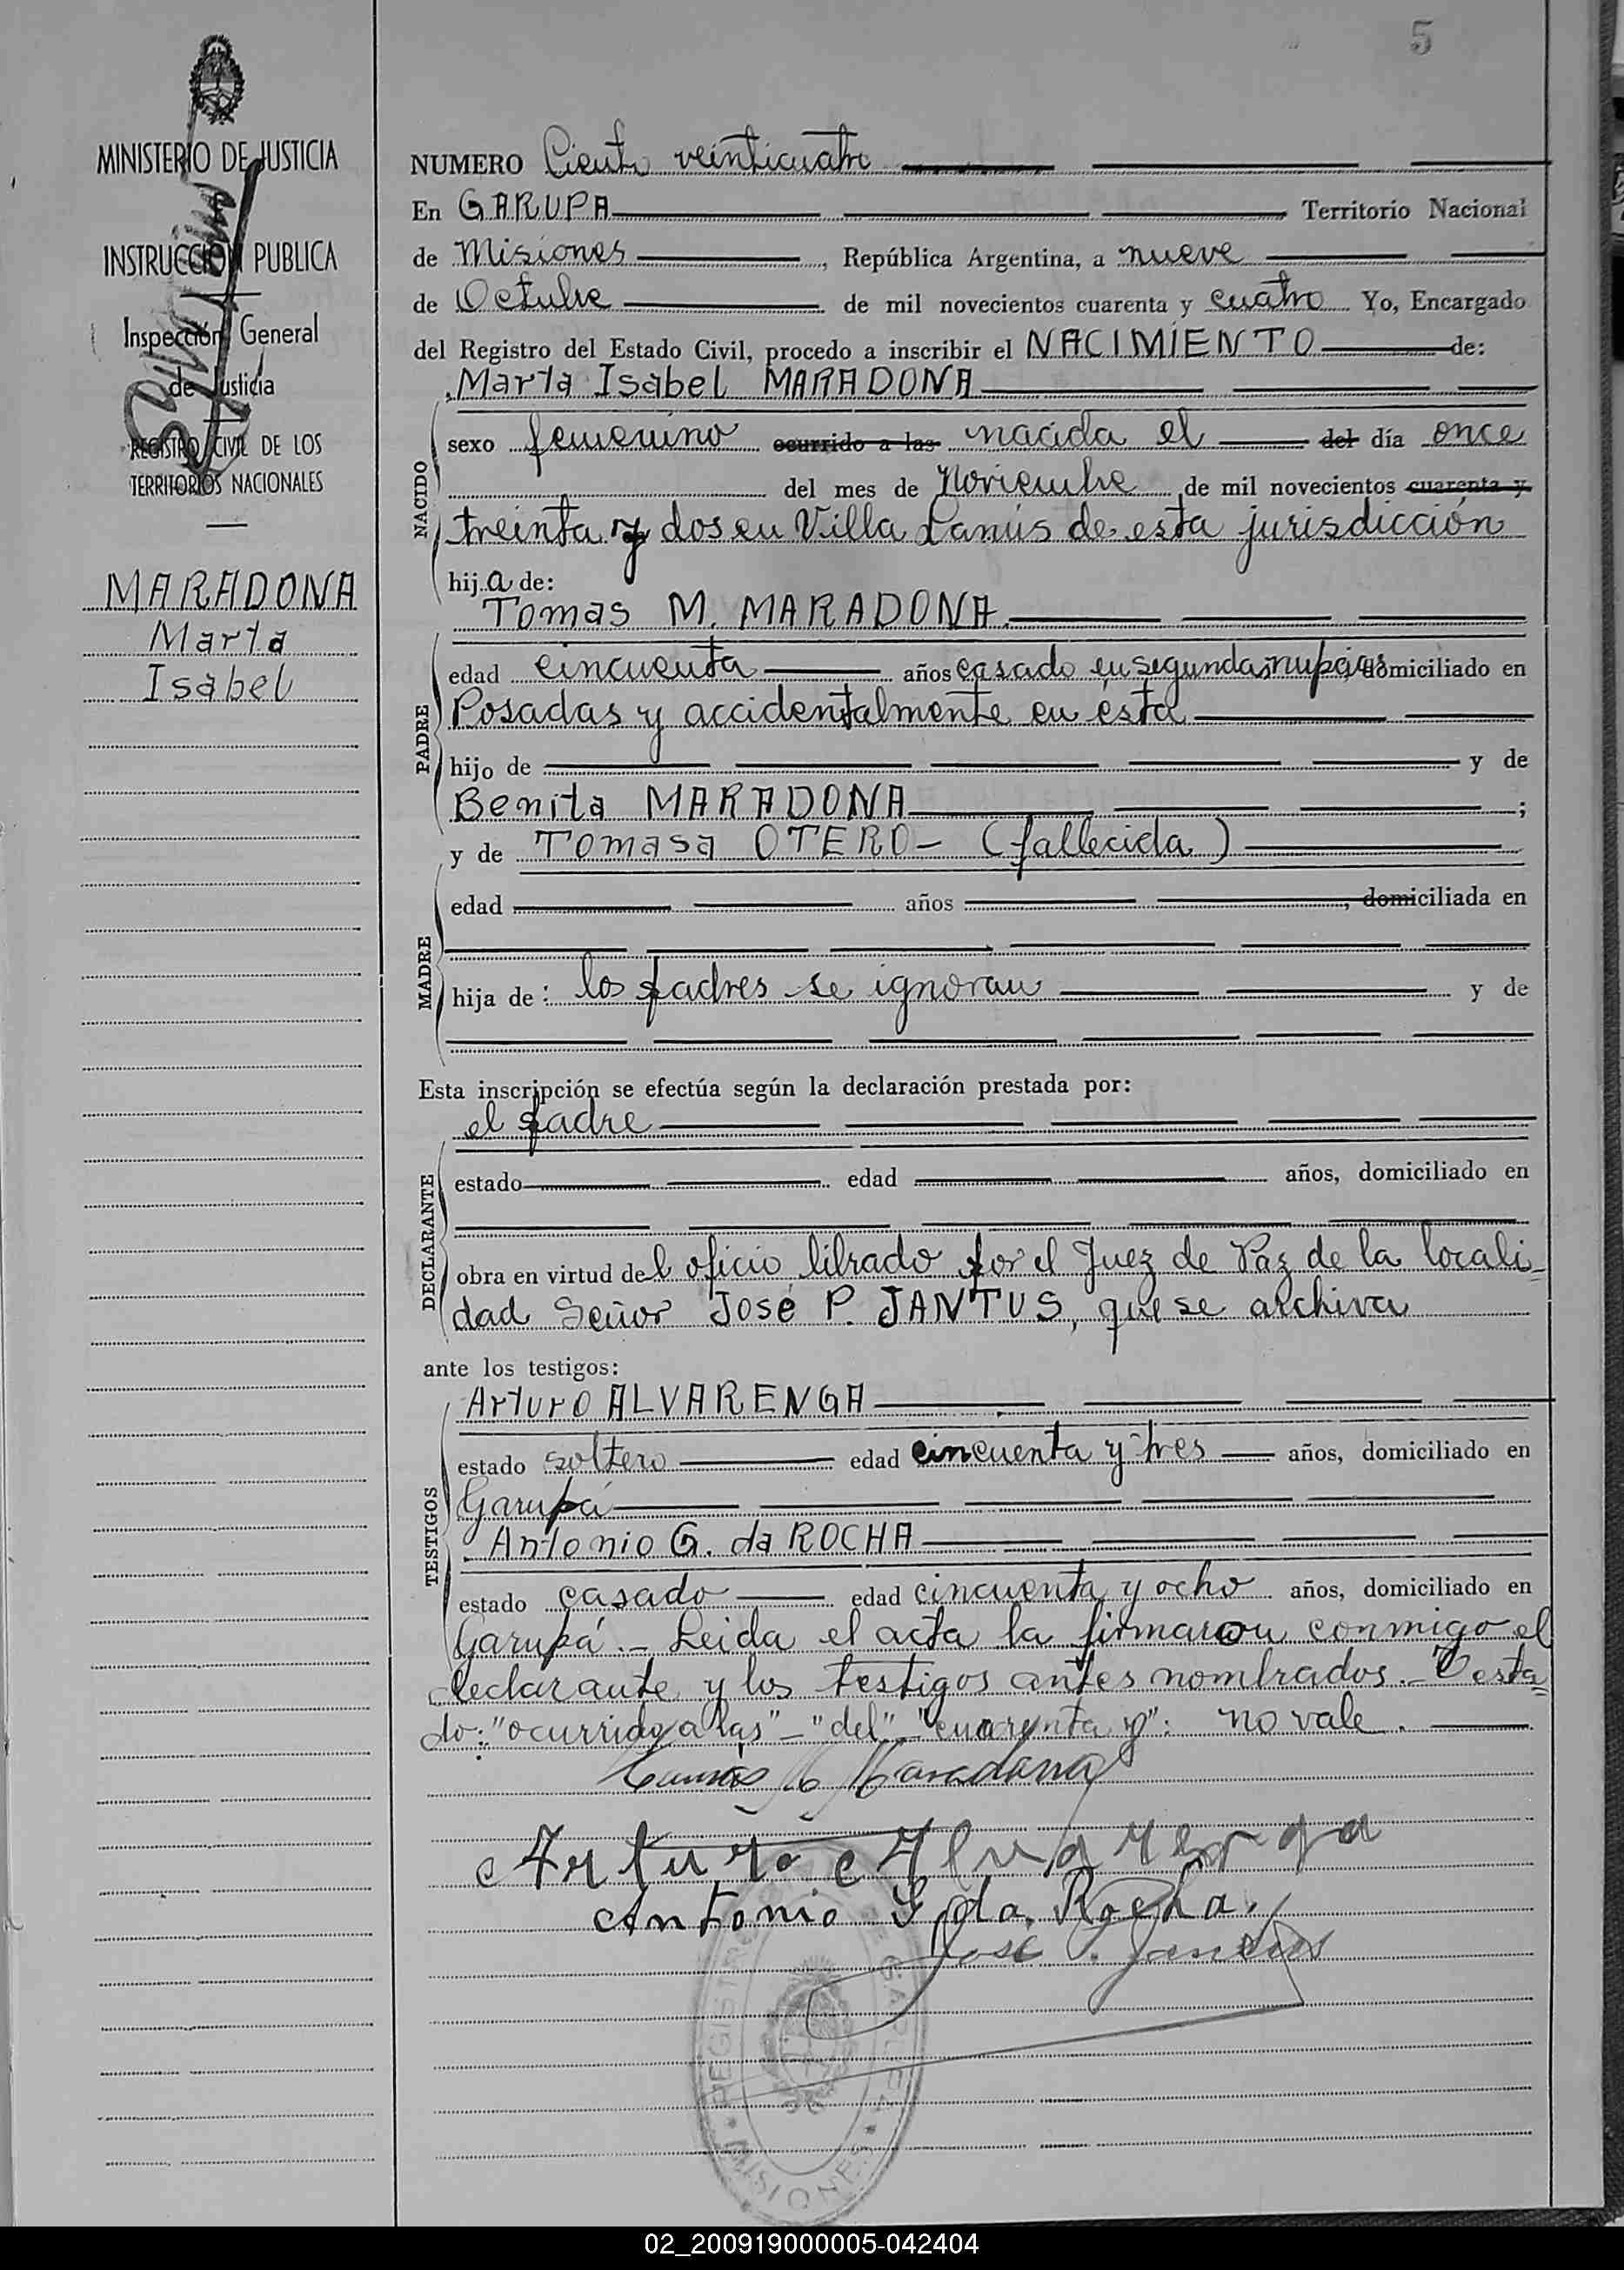 5
MINISTERIO DE JUSTICIA
INSTRUCCION PUBLICA
Inspección General
de Justicia
REGISTRO CIVIL DE LOS
TERRITORIOS NACIONALES
MARADONA
Marta
Isabel
NUMERO Ciento veinticuatro
En GARUPA Territorio Nacional
de Misiones, República Argentina, a nueve
de Octubre de mil novecientos cuarenta y cuatro Yo, Encargado
del Registro del Estado Civil, procedo a inscribir el NACIMIENTO de:
Marta Isabel MARADONA
NACIDO
sexo femenino ocurrido a las nacida el del día once
del mes de Noviembre de mil novecientos cuarenta y
treinta y dos en Villa Lanús de esta jurisdicción
hija de:
Tomas M. MARADONA
PADRE
edad cincuenta años casado en segundas nupcias domiciliado en
Posadas y accidentalmente en ésta
hijo de y de
Benita MARADONA;
y de Tomasa OTERO- (fallecida)
MADRE
edad años, domiciliada en
hija de: los padres se ignoran y de
Esta inscripción se efectúa según la declaración prestada por:
el padre
DECLARANTE
estado edad años, domiciliado en
obra en virtud del oficio librado por el Juez de Paz de la locali-
dad Señor José P. JANTUS, que se archiva
ante los testigos:
Arturo ALVARENGA
TESTIGOS
estado soltero edad cincuenta y tres años, domiciliado en
Garupá
Antonio G. da ROCHA
estado casado edad cincuenta y ocho años, domiciliado en
Garupá.- Leida el acta la firmaron conmigo el
declarante y los testigos antes nombrados.- Testa=
do: "ocurrido a las"-"del"-"cuarenta y": no vale.
Tomás M Maradona
Arturo Alvarenga
Antonio G da Rocha.
José P. Jantus
REGISTRO
MISIONES
02_200919000005-042404